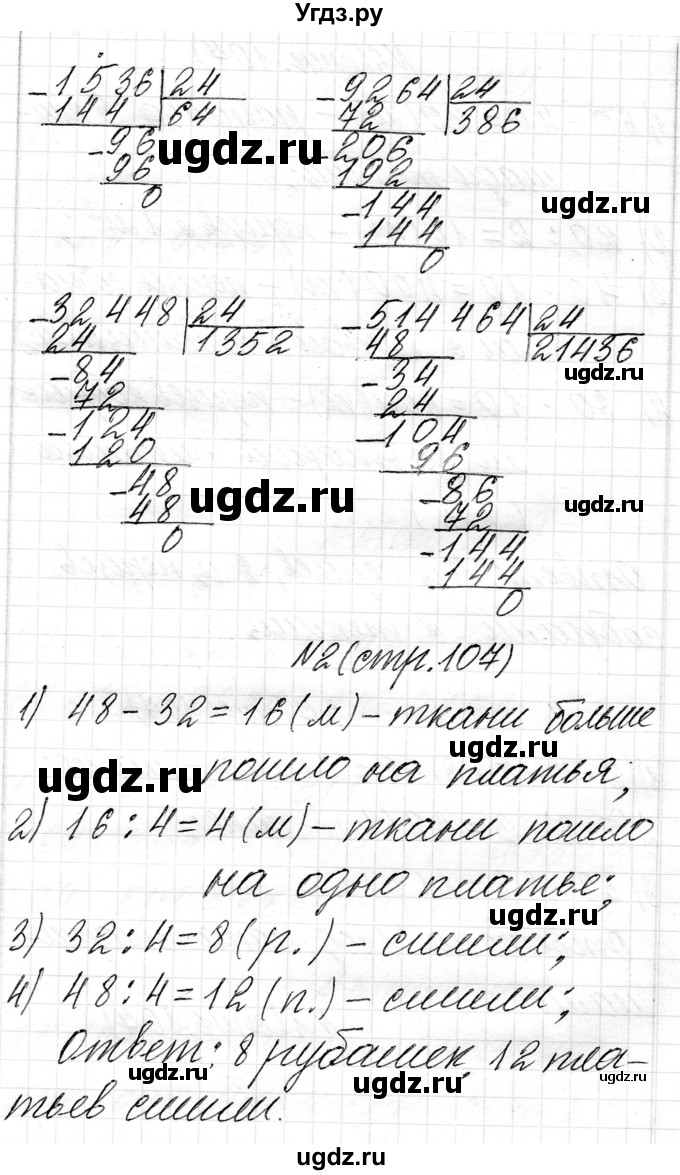 Угдз.ру
- 1536 | 24        - 9264 | 24
144 | 64        72 | 386
- 96        - 206
96        192
0        - 144
144
0
- 32 448 | 24        - 514 464 | 24
24 | 1352        48 | 21436
- 84        - 34
72        24
- 124        - 104
120        96
- 48        - 86
48        72
0        - 144
144
0
№2 (стр.107)
1) 48 - 32 = 16 (м) - ткани больше
пошло на платья;
2) 16 : 4 = 4 (м) - ткани пошло
на одно платье;
3) 32 : 4 = 8 (р.) - сшили;
4) 48 : 4 = 12 (п.) - сшили;
Ответ: 8 рубашек, 12 пла-
тьев сшили.
ugdz.ru
ugdz.ru
ugdz.ru
ugdz.ru
ugdz.ru
ugdz.ru
ugdz.ru
ugdz.ru
ugdz.ru
ugdz.ru
ugdz.ru
ugdz.ru